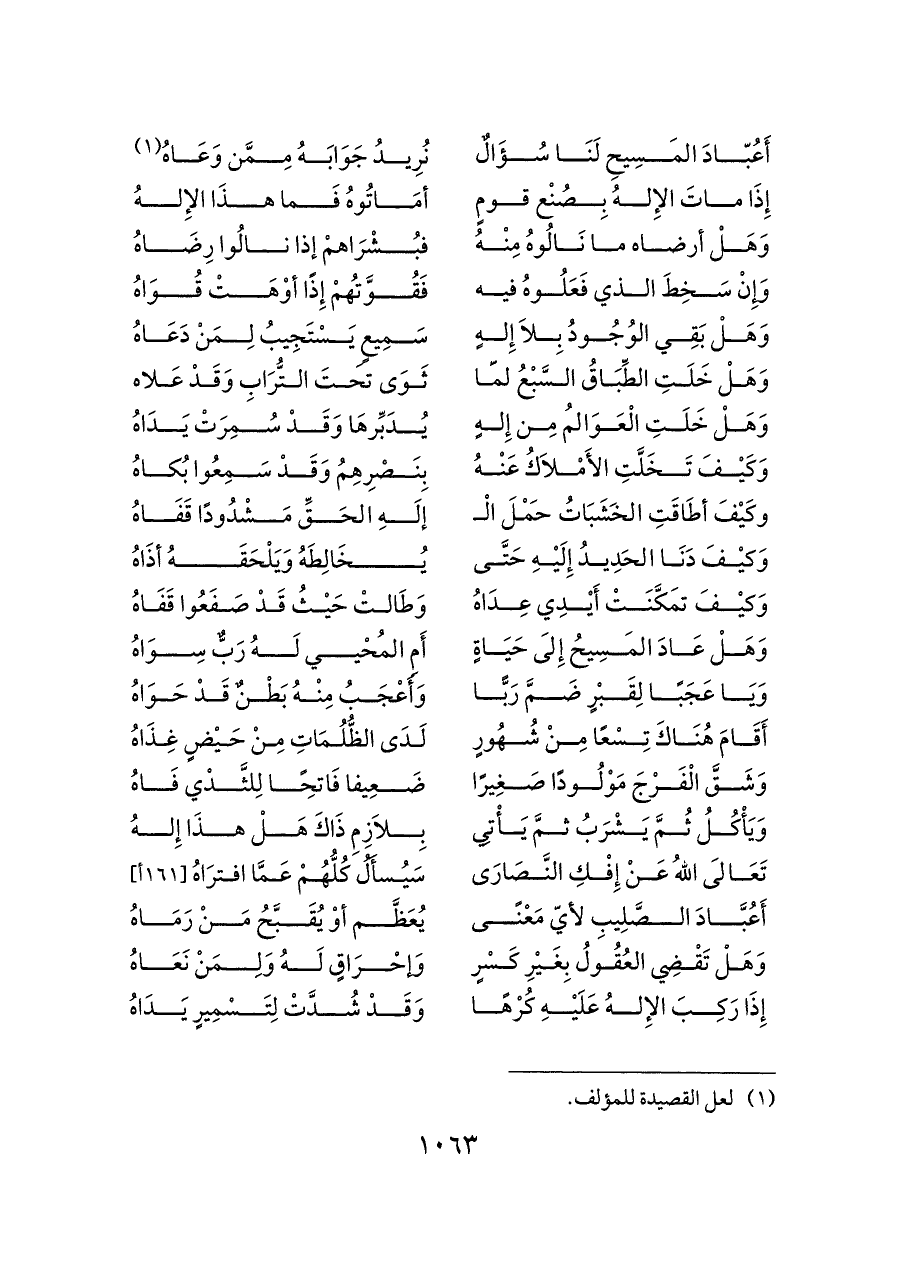 أَعُبَّادَ المَسِيحِ لَنَا سُؤَالٌ نُرِيدُ جَوَابَهُ مِمَّن وَعَاهُ(١)
إِذَا مَاتَ الإِلهُ بِصُنْعِ قومٍ أمَاتُوهُ فَما هذَا الإِلهُ
وَهَلْ أرضاه ما نَالُوهُ مِنْهُ فبُشْرَاهمْ إذا نالُوا رِضَاهُ
وَإِنْ سَخِطَ الذي فَعَلُوهُ فيه فَقُوَّتهُمْ إِذًا أوْهَتْ قُوَاهُ
وَهَلْ بَقِي الوُجُودُ بِلاَ إِلهٍ سَمِيعٍ يَسْتَجِيبُ لِمَنْ دَعَاهُ
وَهَلْ خَلَتِ الطِّبَاقُ السَّبْعُ لمّا ثَوَى تَحتَ التُّرَابِ وَقَدْ عَلاه
وَهَلْ خَلَتِ الْعَوَالمُ مِن إِلهٍ يُدَبِّرهَا وَقَدْ سُمِرَتْ يَدَاهُ
وَكَيْفَ تَخَلَّتِ الأَمْلاَكُ عَنْهُ بِنَصْرِهِمُ وَقَدْ سَمِعُوا بُكاهُ
وكَيْفَ أطَاقَتِ الخَشَبَاتُ حَمْلَ الـ إلَهِ الحَقِّ مَشْدُودًا قَفَاهُ
وَكَيْفَ دَنَا الحَدِيدُ إِلَيْهِ حَتَّى يُخَالِطَهُ وَيَلْحَقَهُ أذَاهُ
وَكَيْفَ تمَكَّنَتْ أَيْدِي عِدَاهُ وَطَالتْ حَيْثُ قَدْ صَفَعُوا قَفَاهُ
وَهَلْ عَادَ المَسِيحُ إِلَى حَيَاةٍ أَمِ المُحْيي لَهُ رَبٌّ سِوَاهُ
وَيَا عَجَبًا لِقَبْرٍ ضَمَّ رَبًّا وَأَعْجَبُ مِنْهُ بَطْنٌ قَدْ حَوَاهُ
أَقَامَ هُنَاكَ تِسْعًا مِنْ شُهُورٍ لَدَى الظُّلُمَاتِ مِنْ حَيْضٍ غِذَاهُ
وَشَقَّ الْفَرْجَ مَوْلُودًا صَغِيرًا ضَعِيفا فَاتحًا لِلثَّدْي فَاهُ
وَيَأْكُلُ ثُمَّ يَشْرَبُ ثمَّ يَأتِي بِلاَزِمِ ذَاكَ هَلْ هذَا إِلهُ
تَعَالَى اللهُ عَنْ إِفْكِ النَّصَارَى سَيُسأَلُ كُلُّهُمْ عَمَّا افتَرَاهُ [١٦١أ]
أَعُبَّادَ الصَّلِيبِ لأيّ مَعْنًى يُعَظَّم أوْ يُقَبَّحُ مَنْ رَمَاهُ
وَهَلْ تَقْضِي العُقُولُ بِغَيْرِ كَسْرٍ وَإحْرَاقٍ لَهُ وَلِمَنْ نَعَاهُ
إِذَا رَكِبَ الإِلهُ عَلَيْهِ كُرْهًا وَقَدْ شُدَّتْ لِتَسْمِيرٍ يَدَاهُ
(١) لعل القصيدة للمؤلف.
١٠٦٣